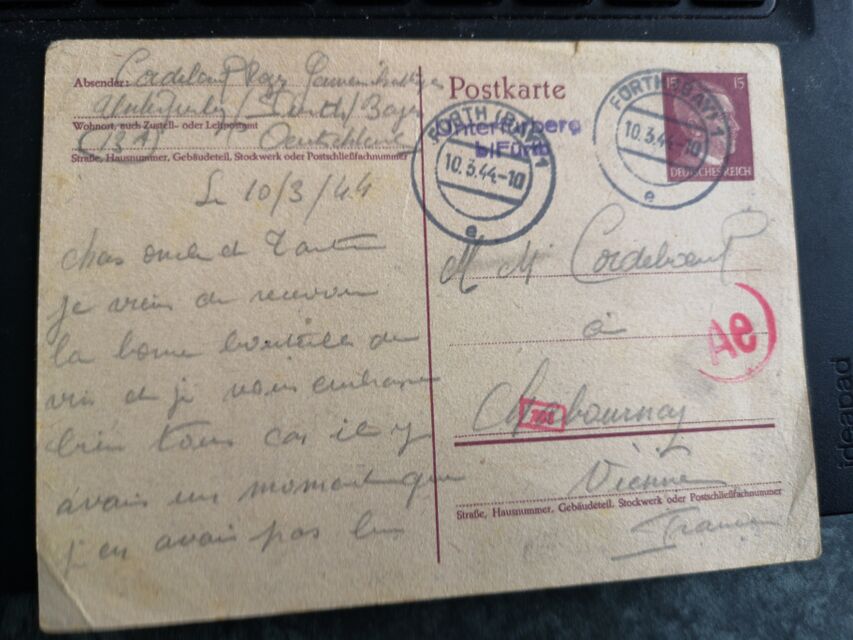 Absender:
Wohnort, auch Zustell- oder Leitpostamt
(13A)
Straße, Hausnummer, Gebäudeteil, Stockwerk oder Postschließfachnummer
Le 10/3/44
cher oncle et Tante
je viens de recevoir
la bonne bouteille de
vin et je vous embrasse
bien tous car il y
avais un moment que
j'en avais pas bu
Postkarte
Unterfürberg
b/Fürth
FÜRTH (BAY) 1
10.3.44-10
e
FÜRTH (BAY) 1
10.3.44-10
e
15
15
DEUTSCHES REICH
M M Cordeboeuf
à
Ae
Cherbournay
Vienne
Straße, Hausnummer, Gebäudeteil, Stockwerk oder Postschließfachnummer
France
ideapad